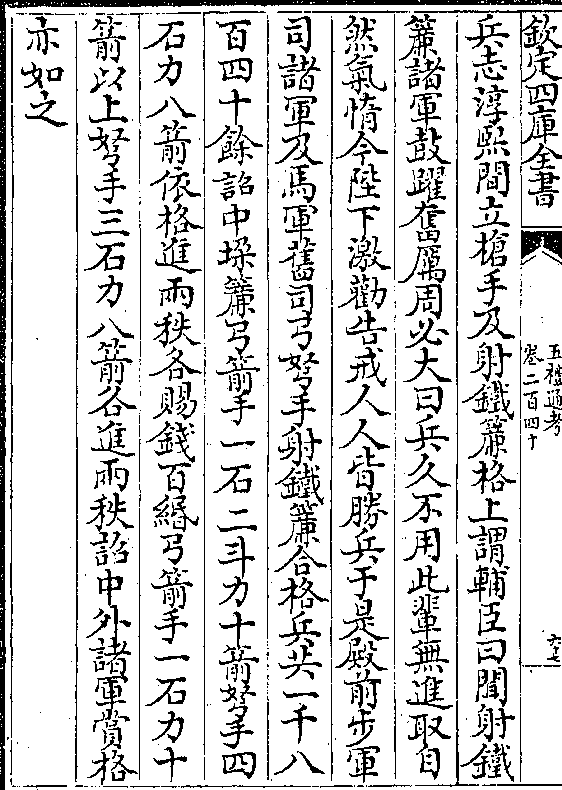 欽定四庫全書
五禮通考
卷二百四十
六十七
兵志淳熙間立槍手及射鐵簾格上謂輔臣曰聞射鐵
簾諸軍鼓躍奮厲周必大曰兵久不用此輩無進取自
然氣惰今陛下激勸告戒人人皆勝兵于是殿前步軍
司諸軍及馬軍舊司弓弩手射鐵簾合格兵共一千八
百四十餘詔中垜簾弓箭手一石二斗力十箭弩手四
石力八箭依格進兩秩各賜錢百緡弓箭手一石力十
箭以上弩手三石力八箭各進兩秩詔中外諸軍賞格
亦如之